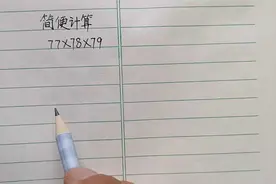 简便计算
77×78×79